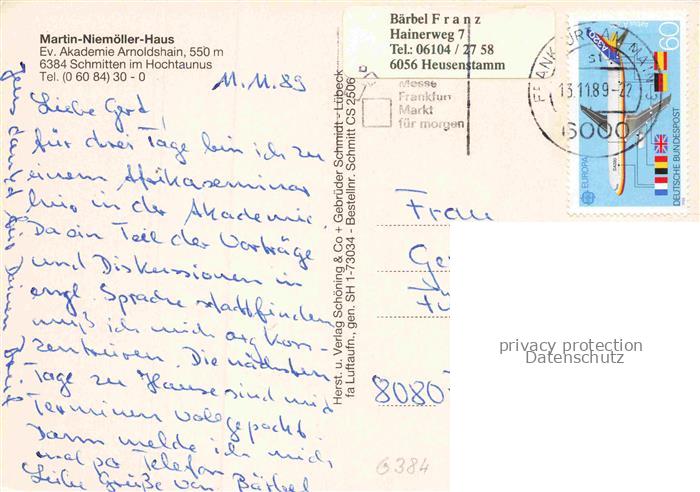 Martin-Niemöller-Haus
Ev. Akademie Arnoldshain, 550 m
6384 Schmitten im Hochtaunus
Tel. (0 60 84) 30 - 0
11.11.89
Liebe Gerd,
für drei Tage bin ich zu
einem Afrikaseminar
hier in der Akademie.
Da ein Teil der Vorträge
und Diskussionen in
engl. Sprache stattfinden
muß ich mich arg kon-
zentrieren. Die nächsten
Tage zu Hause sind mit
Terminen vollgepackt.
Dann melde ich mich
mal per Telefon
Liebe Grüße von Bärbel
Herst. u. Verlag Schöning & Co + Gebrüder Schmidt - Lübeck
fa Luftaufn., gen. SH 1-73034 - Bestellnr. Schmitt CS 2506
Bärbel Franz
Hainerweg 7
Tel.: 06104 / 27 58
6056 Heusenstamm
Messe
Frankfurt
Markt
für morgen
FRANKFURT AM MAIN 3
st
13.11.89-22
6000
60
A320
EUROPA
DEUTSCHE BUNDESPOST
Frau
8080
6384
privacy protection
Datenschutz